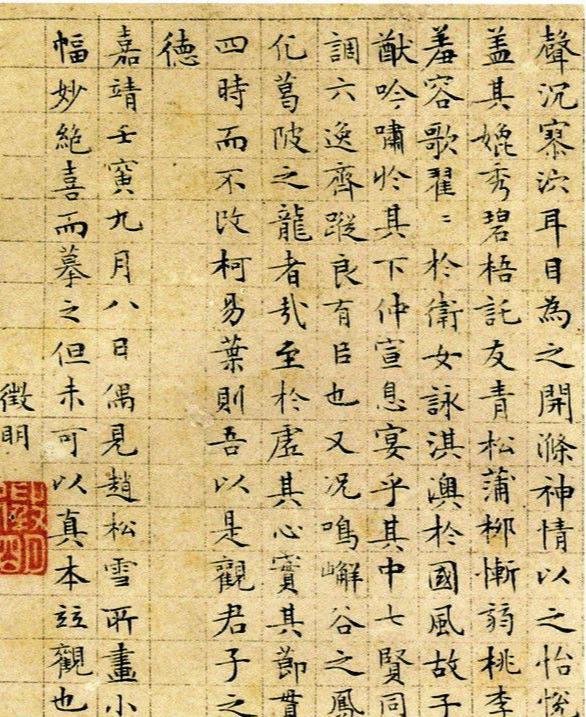 聲沉寥泬耳目為之開滌神情以之怡悅
盖其媲秀碧梧託友青松蒲柳慚弱桃李
羞容歌翟〻於衛女詠淇澳於國風故子
猷吟嘯於其下仲宣息宴乎其中七賢同
調六逸齊蹤良有㠯也又况鳴嶰谷之鳳
化葛陂之龍者哉至於虛其心實其節貫
四時而不改柯易葉則吾以是觀君子之
德
嘉靖壬寅九月八日偶見趙松雪所畫小
幅妙絶喜而摹之但未可以真本竝觀也
徵明
徵明